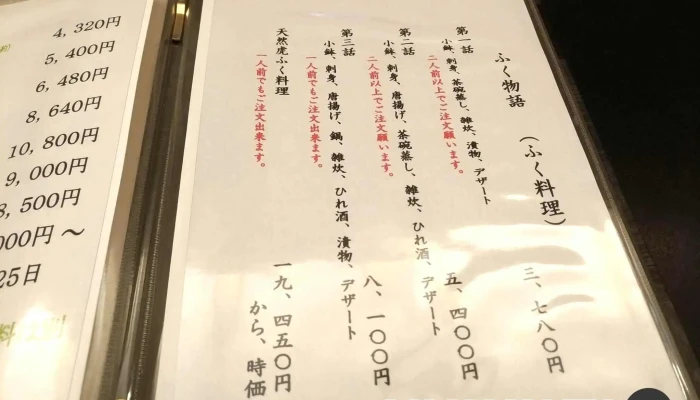 ふく物語 (ふく料理)
第一話 三、七八〇円
小鉢、刺身、茶碗蒸し、雑炊、漬物、デザート
二人前以上でご注文願います。
第二話 五、四〇〇円
小鉢、刺身、唐揚げ、茶碗蒸し、雑炊、ひれ酒、デザート
二人前以上でご注文願います。
第三話 八、一〇〇円
小鉢、刺身、唐揚げ、鍋、雑炊、ひれ酒、漬物、デザート
一人前でもご注文出来ます。
天然虎ふく料理 一九、四五〇円
から、時価
一人前でもご注文出来ます。
4,320円
5,400円
6,480円
8,640円
10,800円
9,000円
8,500円
000円 ～
25日